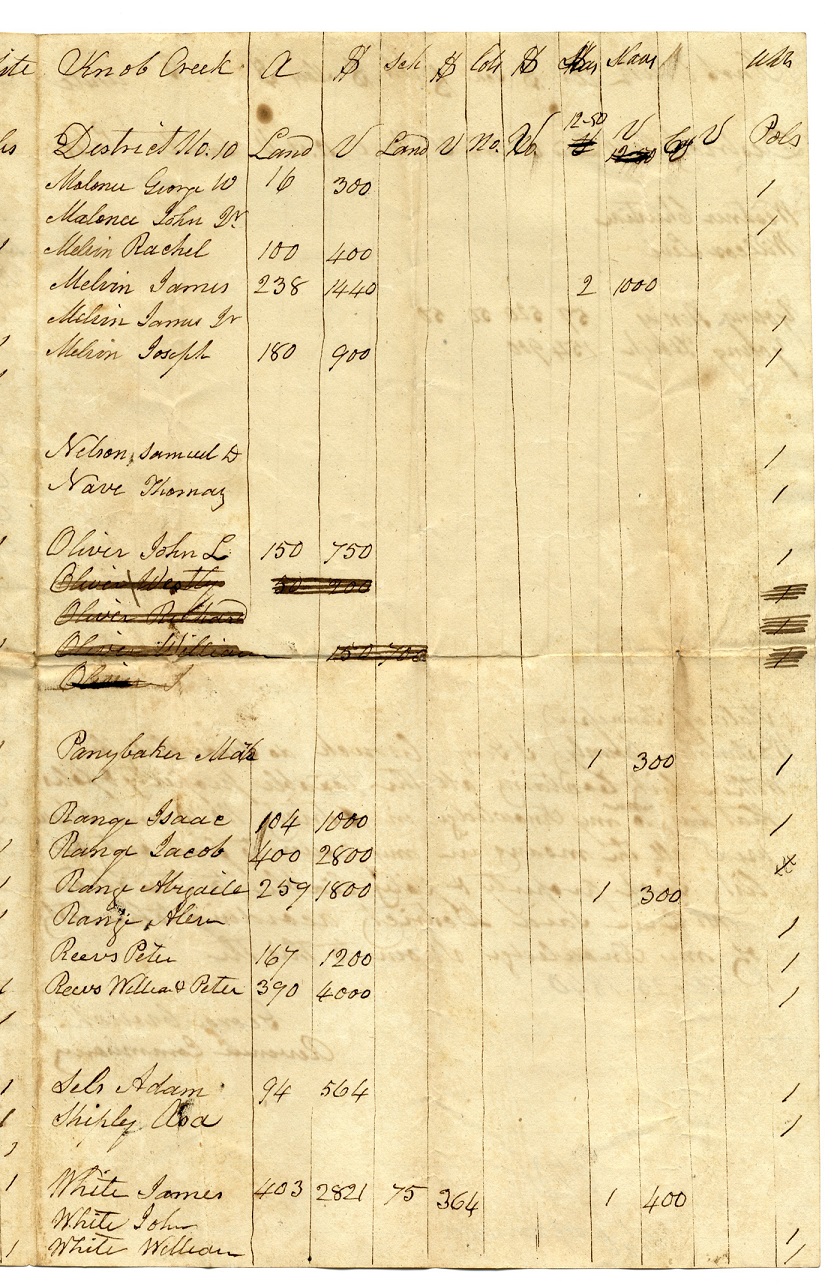 Knob Creek A $ Sch $ Cols $ Slaves
District No. 10 Land V Land V No. V 12-50 V V Pols
Malonee George W 16 300 1
Malonee John Dr 1
Melvin Rachel 100 400
Melvin James 238 1440 2 1000
Melvin James Jr 1
Melvin Joseph 180 900 1
Nelson, Samuel D 1
Nave Thomas 1
Oliver John L 150 750 1
Oliver Westly 200 1
Oliver Richard 1
Oliver William 150 700 1
Oliver
Panybaker Mak 1 300 1
Range Isaac 104 1000 1
Range Jacob 400 2800
Range Abigaile 259 1800 1 300
Range Alen 1
Reevs Peter 167 1200 1
Reevs William & Peter 390 4000 1
Sels Adam 94 564 1
Shipley Asa 1
White James 403 2821 75 364 1 400
White John 1
White William 1